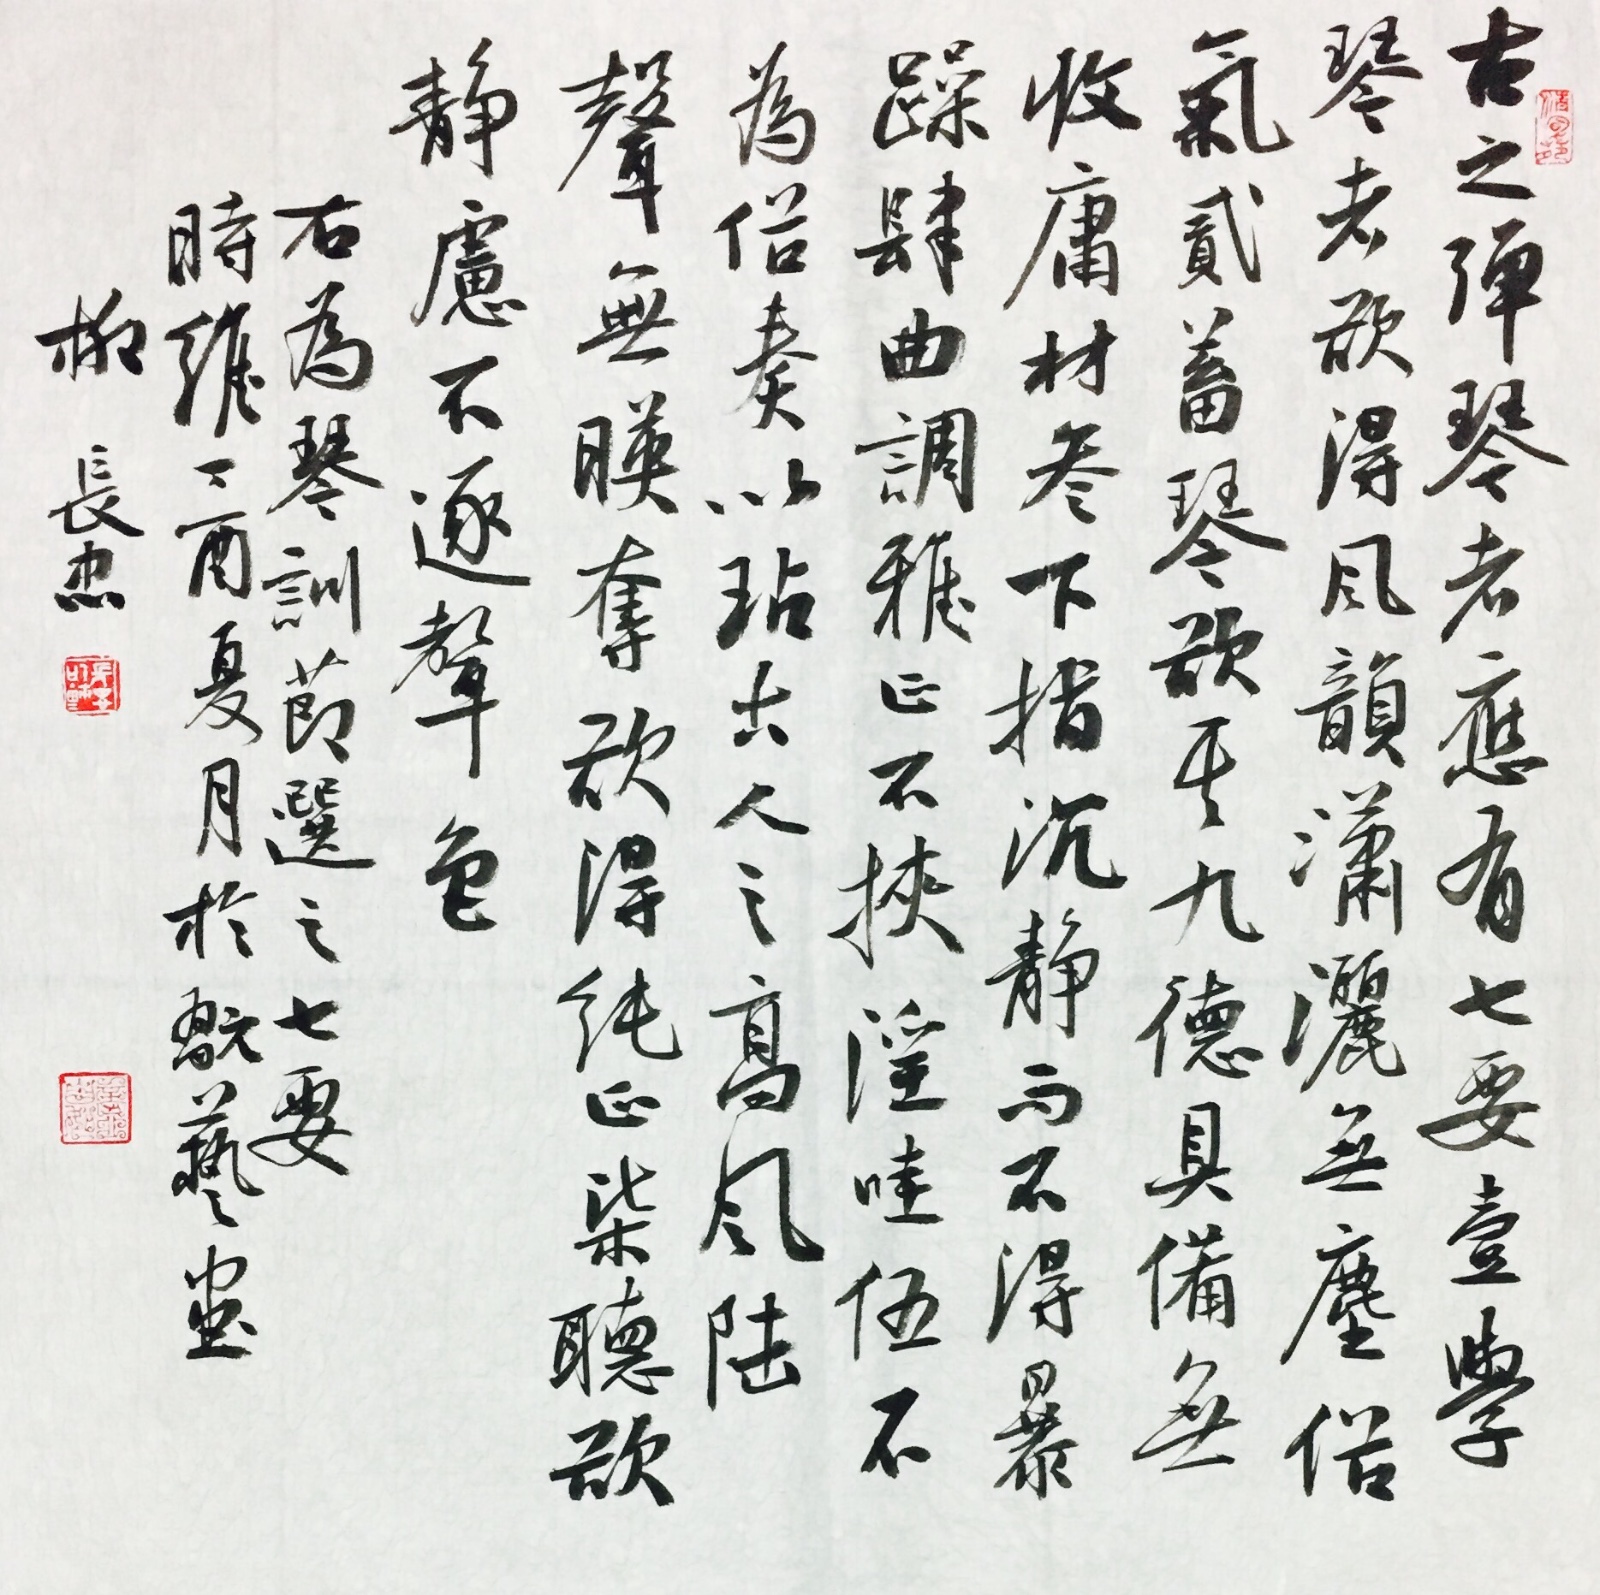 古之弹琴者應有七要壹學
琴者欲得风韻瀟灑無塵俗
氣貳蓄琴欲其九德具備無
收庸材叁下指沉静而不得暴
躁肆曲調雅正不挾淫哇伍不
為俗奏以玷古人之高风陆
聲無映奪欲得纯正柒聽欲
静慮不逐聲色
右為琴訓節選之七要
時維丁酉夏月於翫藝堂
柳長忠